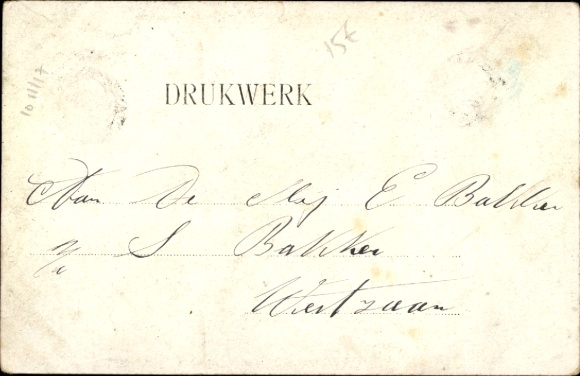 15€
10 11/17
DRUKWERK
Aan De Mej E Bakker
p/a S Bakker
Westzaan